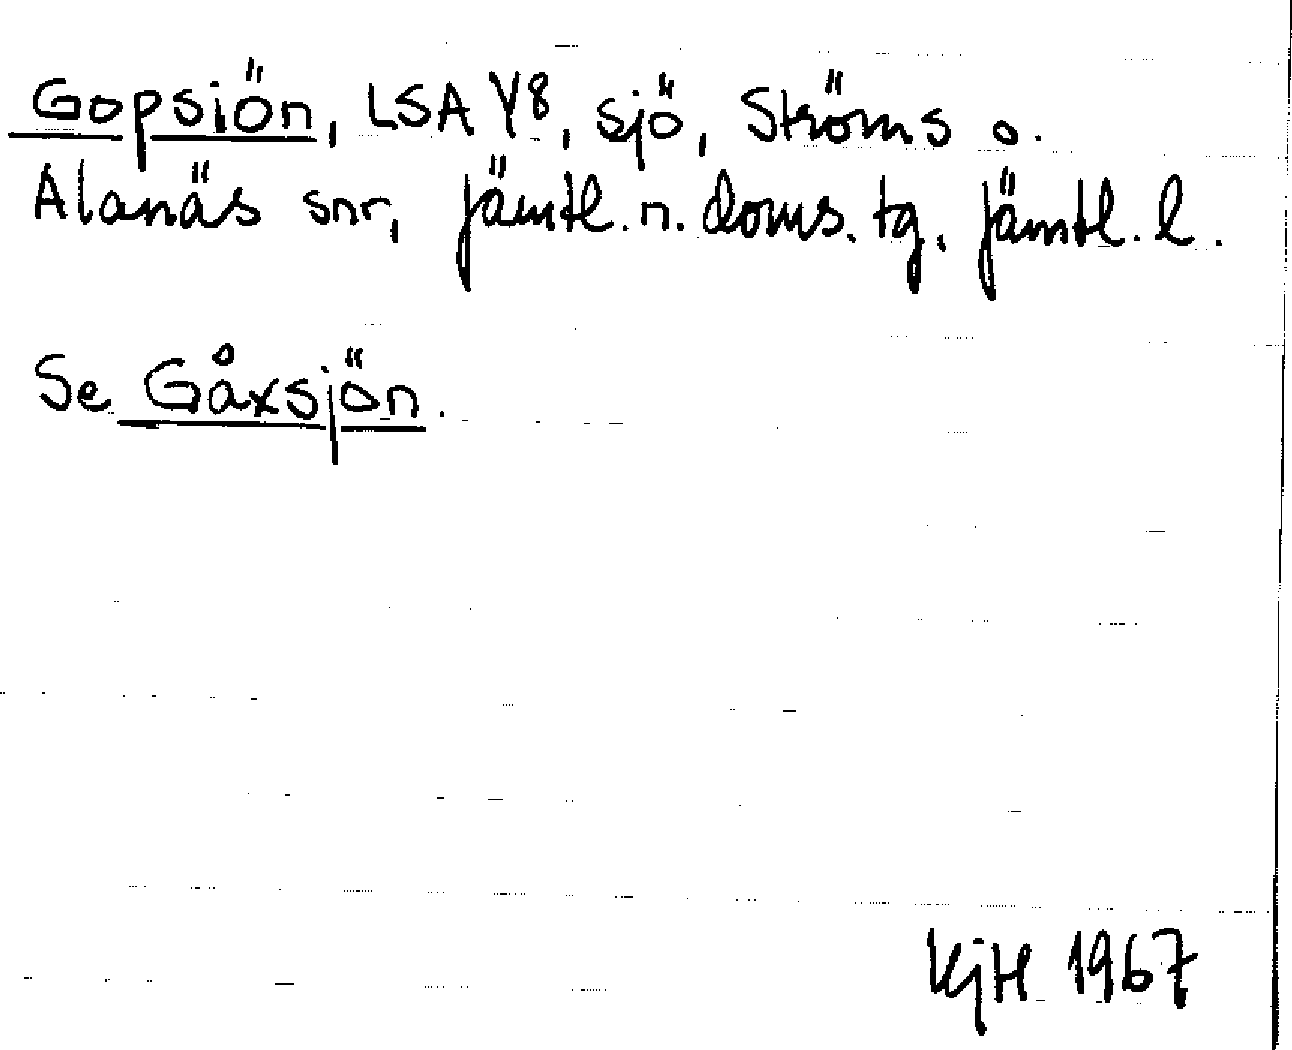 Gopsiön, LSA Y8, sjö, Ströms o.
Alanäs snr, Jämtl. n. doms. tg, Jämtl. l.
Se Gåxsjön.
KjH 1967